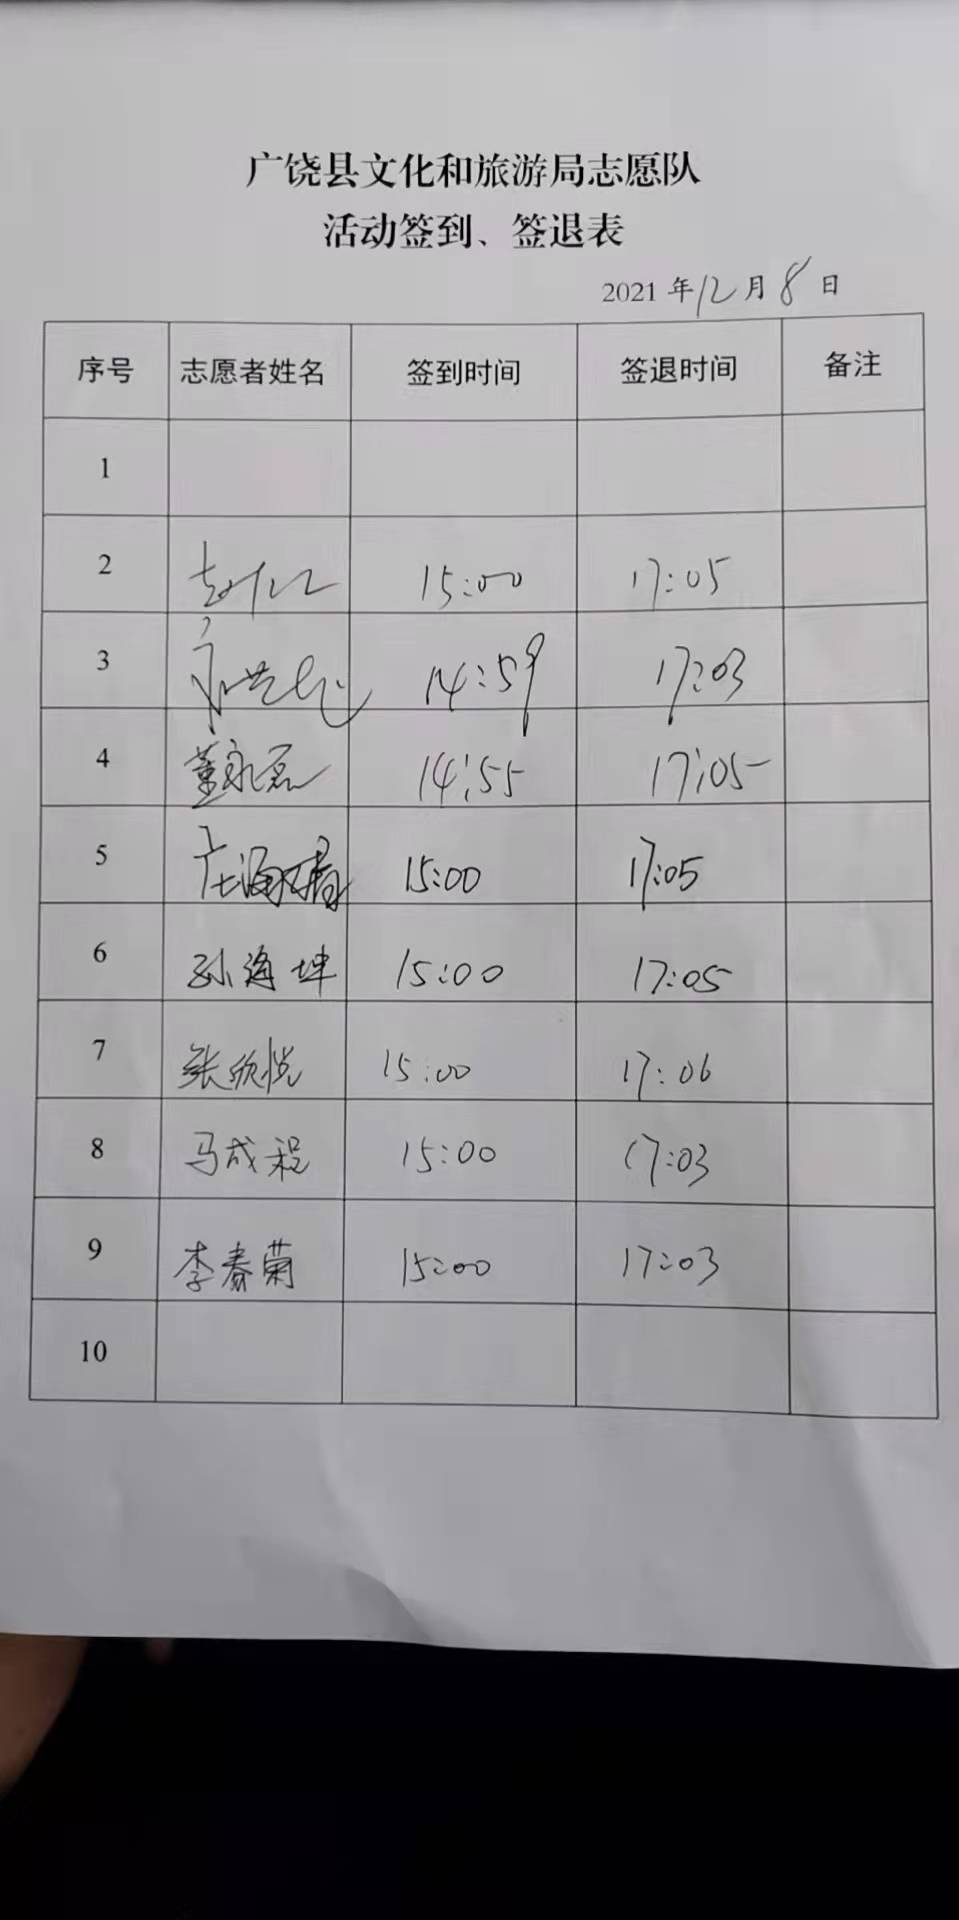 广饶县文化和旅游局志愿队
活动签到、签退表
2021 年 12 月 8 日
序号 志愿者姓名 签到时间 签退时间 备注
1
2 15:00 17:05
3 14:59 17:03
4 董永磊 14:55 17:05
5 15:00 17:05
6 孙海坤 15:00 17:05
7 张欣悦 15:00 17:06
8 马成程 15:00 17:03
9 李春菊 15:00 17:03
10